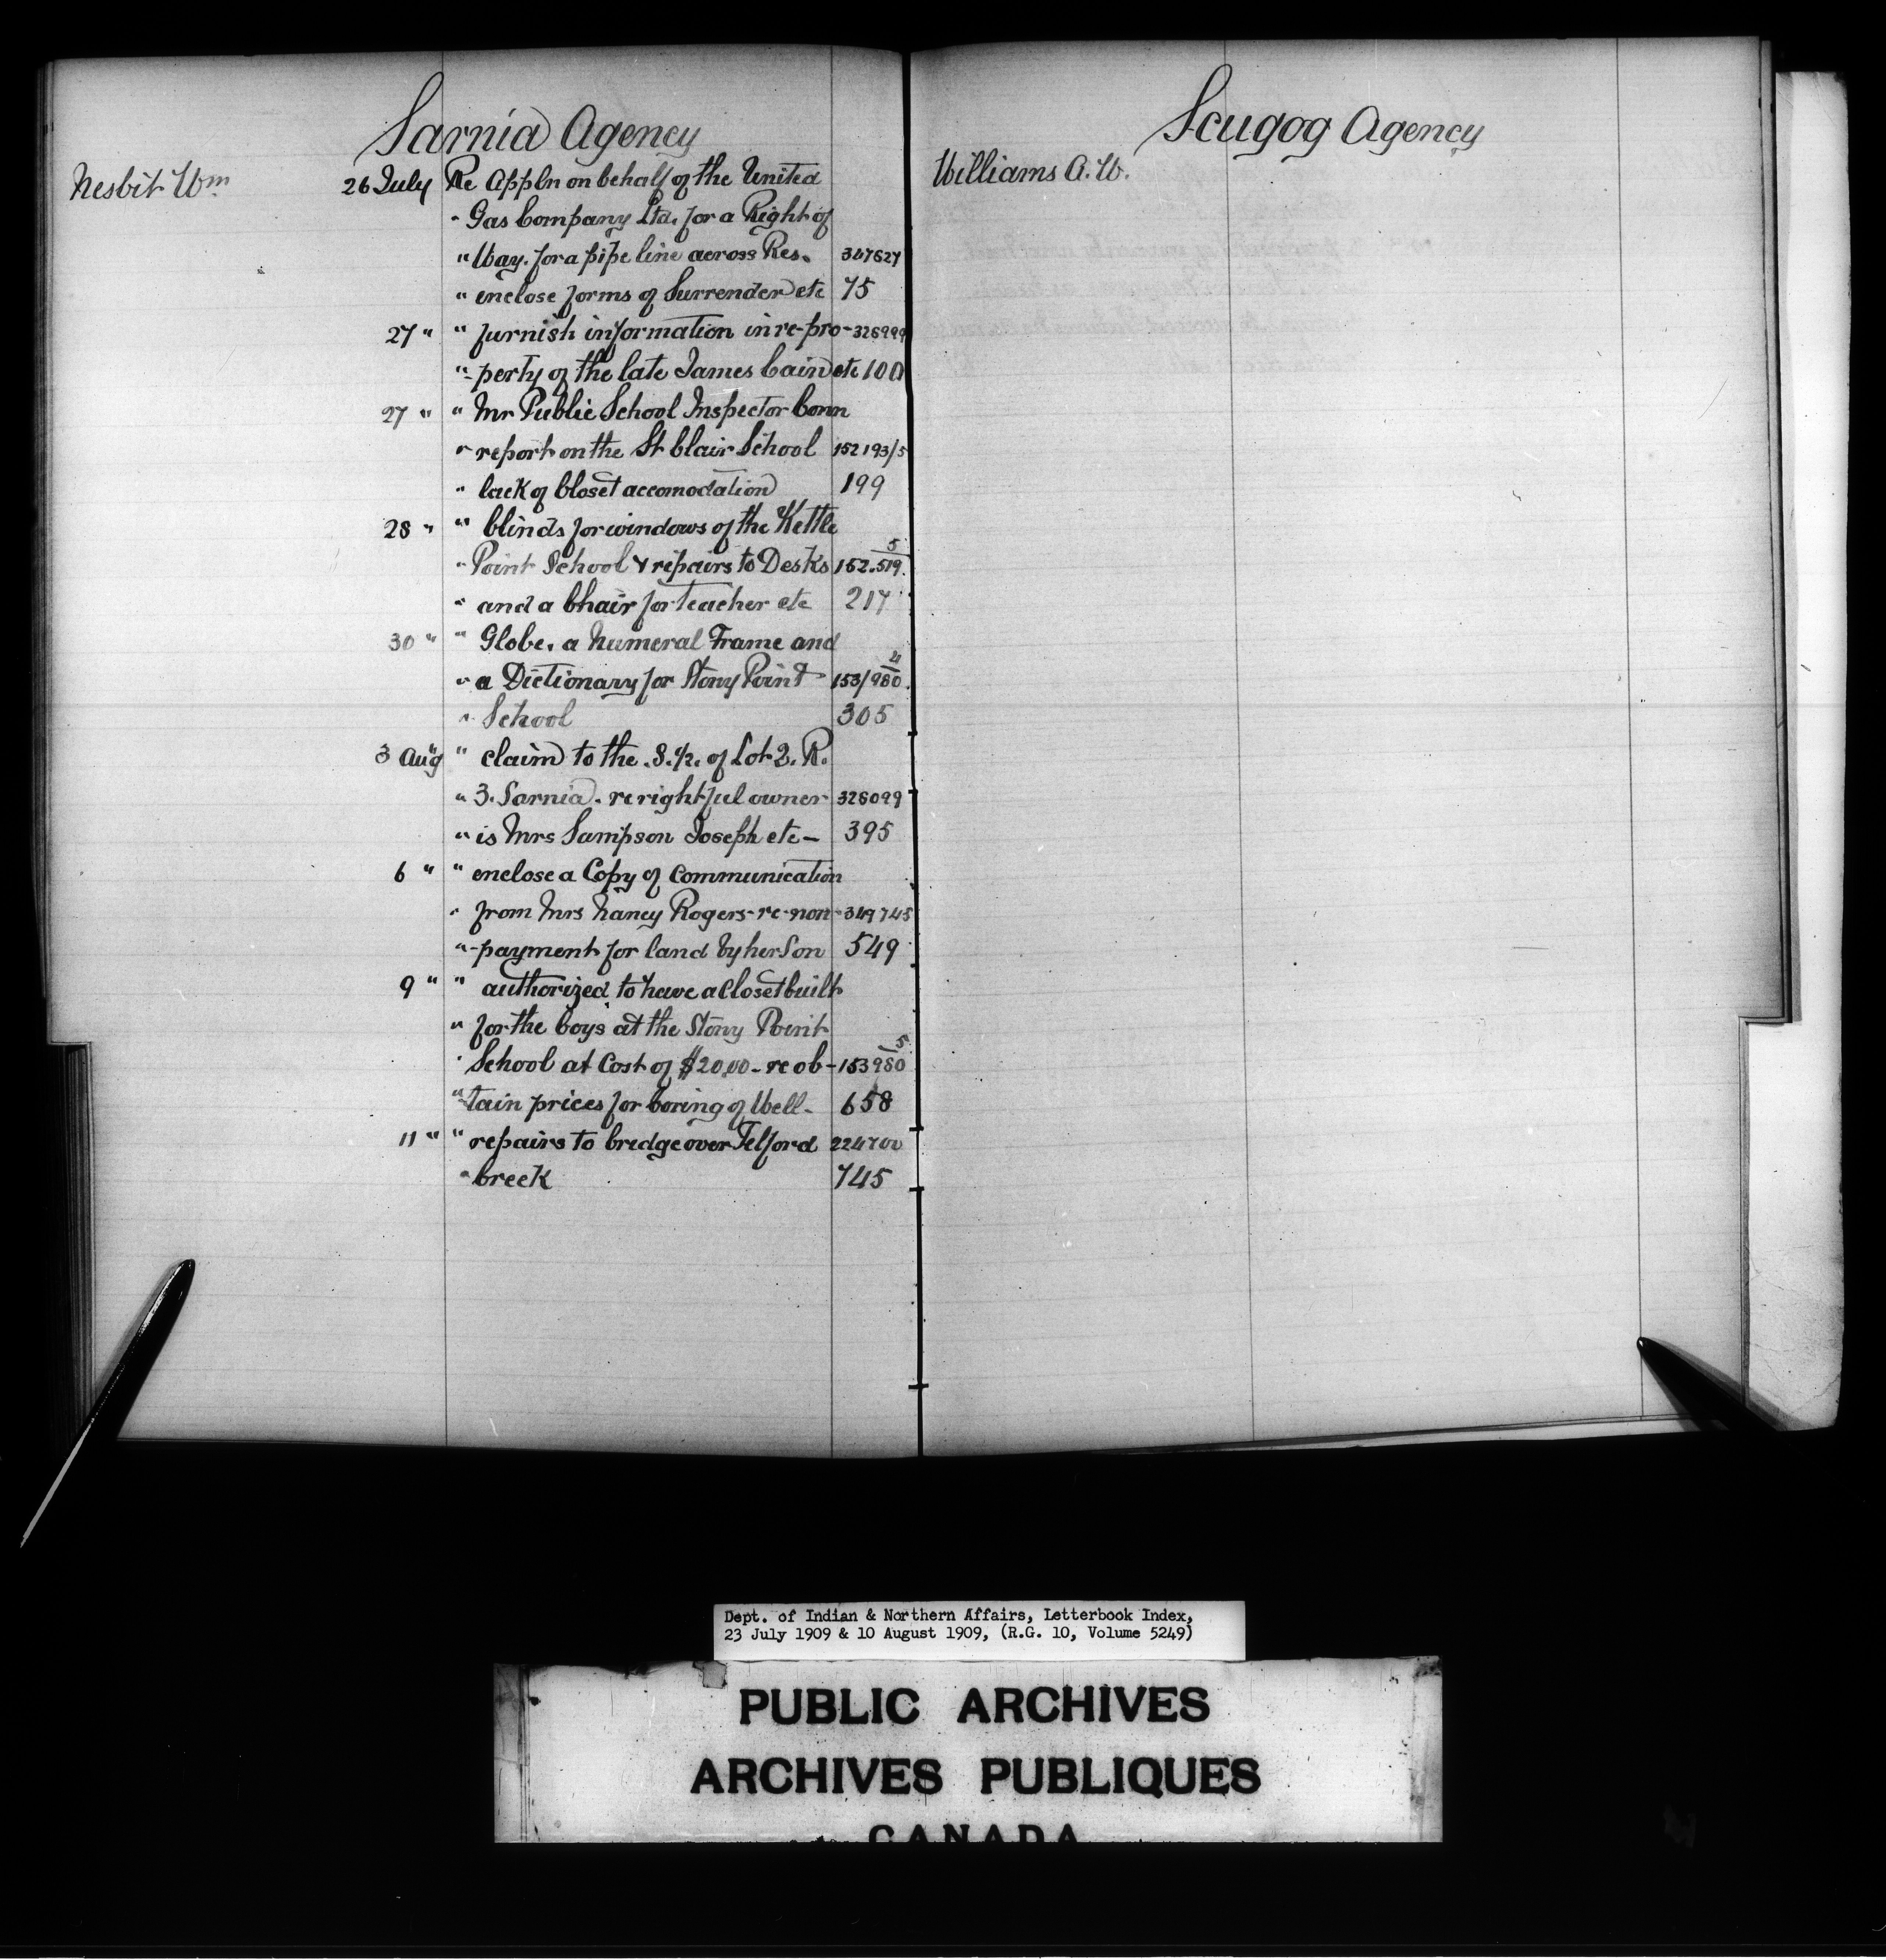 Sarnia Agency
Nesbit Wm 26 July Re Appln on behalf of the United
" Gas Company Ltd. for a Right of
" Way. for a pipe line across Res. 347627
" enclose forms of Surrender etc 75
27 " " furnish information in re-pro- 326999
" perty of the late James Cain etc 100
27 " " Mr Public School Inspector Conn
" report on the St Clair School 152193/5
" lack of Closet accomodation 199
28 " " blinds for windows of the Kettle
" Point School & repairs to Desks 152.519/5
" and a Chair for teacher etc 217
30 " " Globe, a Numeral Frame and
" a Dictionary for Stony Point 153/980/4
" School 305
3 Aug " claim to the S. ½. of Lot 2. R.
" 3. Sarnia. re rightful owner 326099
" is Mrs Sampson Joseph etc - 395
6 " " enclose a Copy of Communication
" from Mrs Nancy Rogers - re - non - 349745
" payment for land by her Son 549
9 " " authorized to have a Closet built
" for the boys at the Stony Point
" School at Cost of $20.00 - re ob- 153980/5
" tain prices for boring of Well - 658
11 " " repairs to bridge over Telford 224700
" Creek 745
Scugog Agency
Williams A. W.
Dept. of Indian & Northern Affairs, Letterbook Index,
23 July 1909 & 10 August 1909, (R.G. 10, Volume 5249)
PUBLIC ARCHIVES
ARCHIVES PUBLIQUES
CANADA